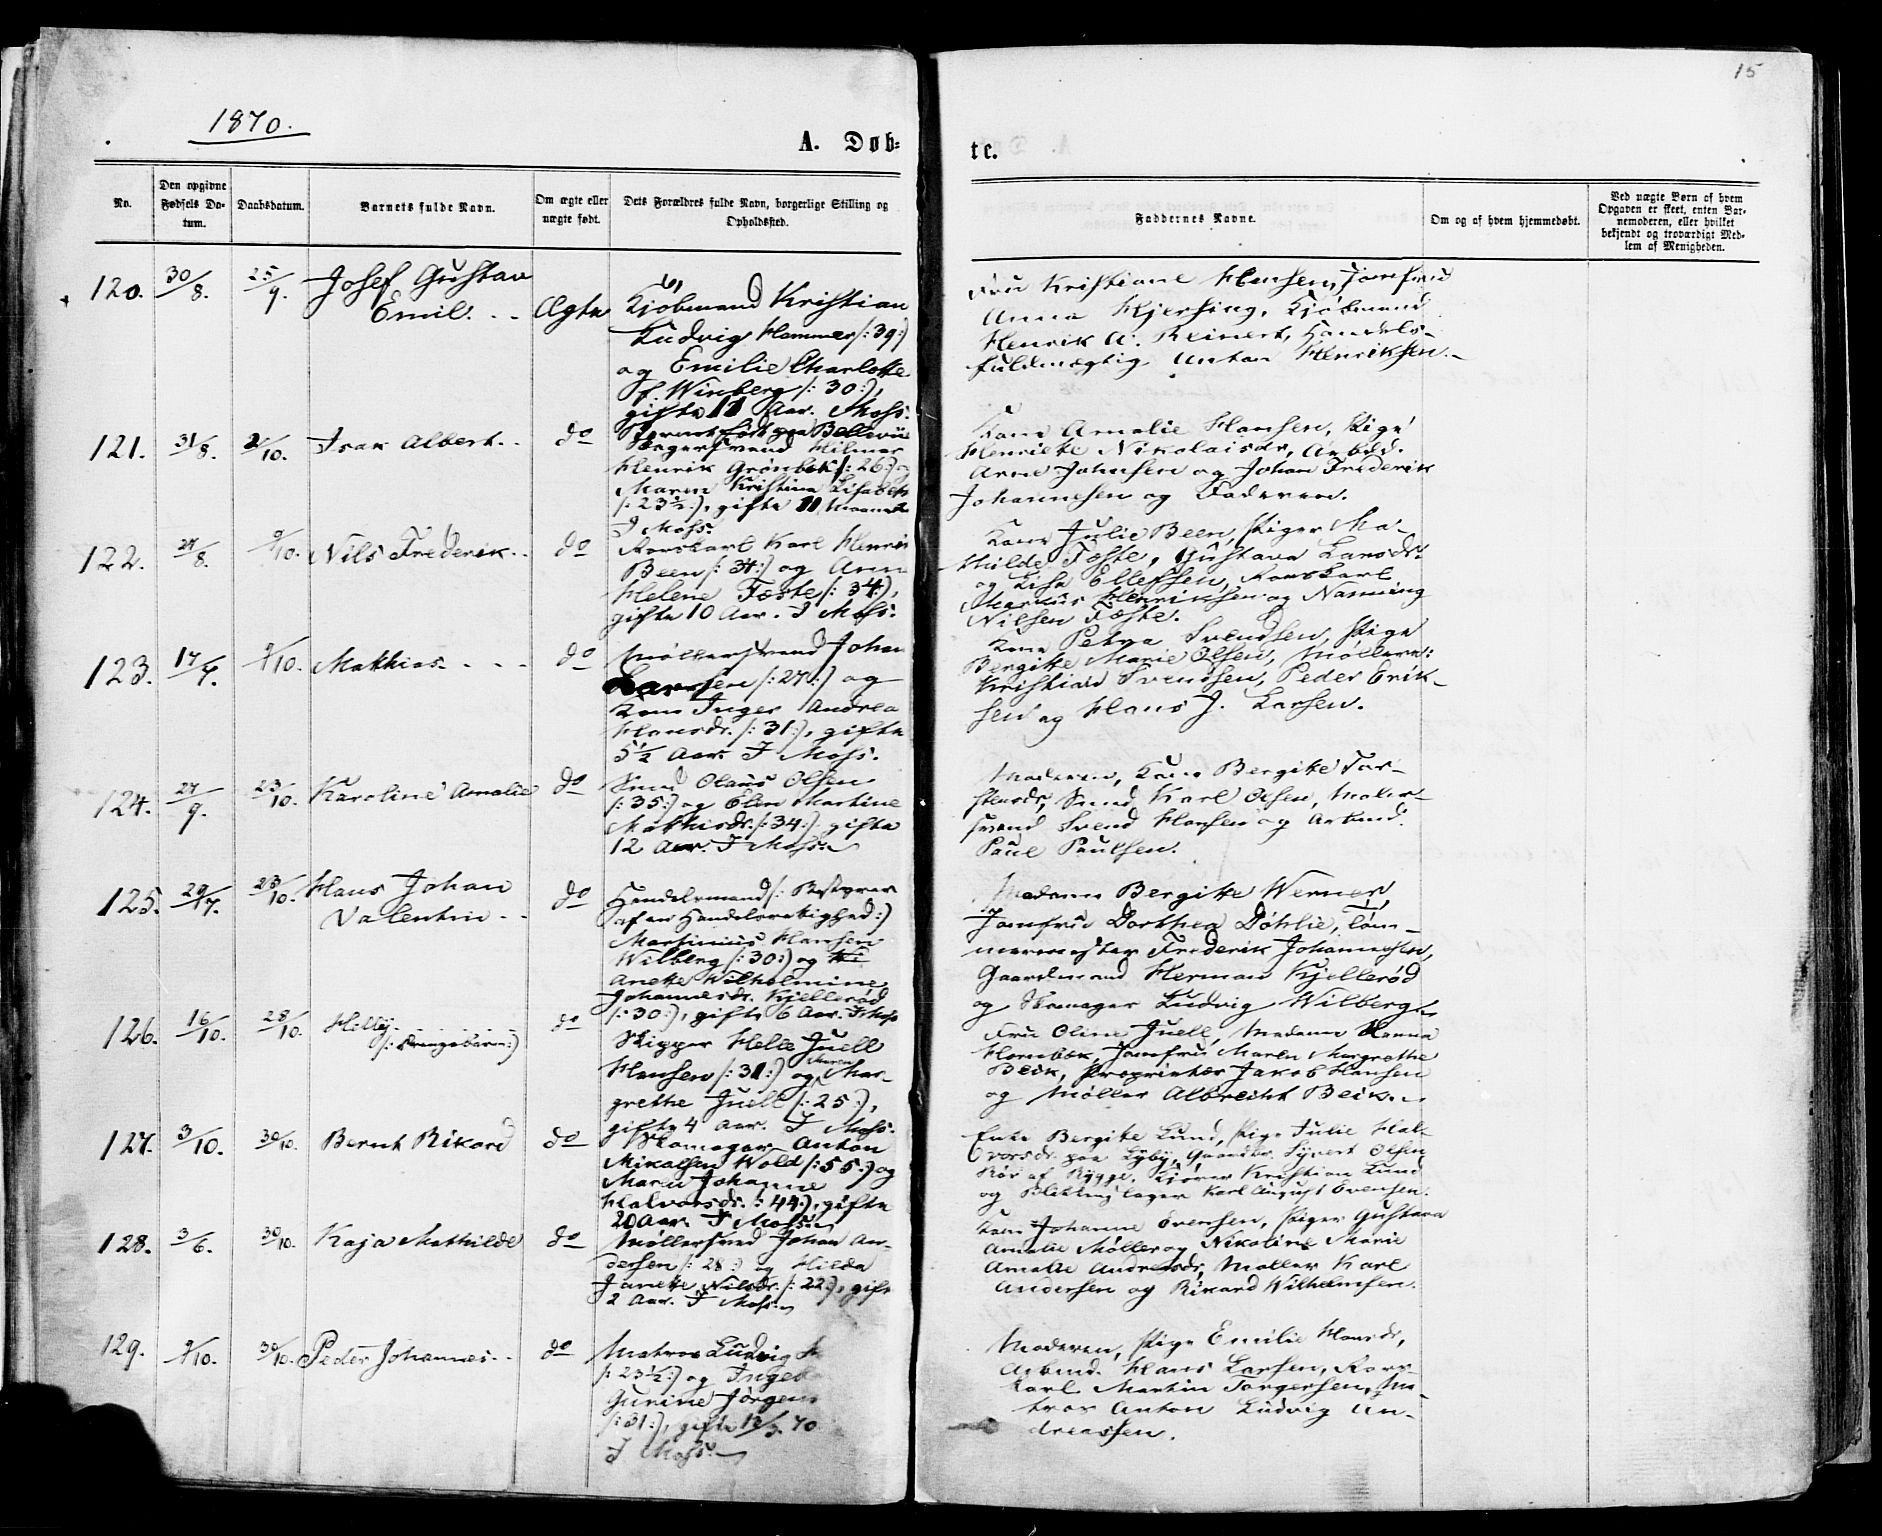 15
1870.
A. Døb-
te.
No.
Den opgivne
Fødsels Da-
tum.
Daabsdatum.
Barnets fulde Navn.
Om ægte eller
uægte født.
Dets Forældres fulde Navn, borgerlige Stilling og
Opholdssted.
Faddernes Navne.
Om og af hvem hjemmedøbt.
Ved uægte Børn af hvem
Opgaven er skeet, enten Bar-
nemoderen, eller hvilket
bekjendt og troværdigt Med-
lem af Menigheden.
120.
30/8.
25/9.
Josef Gustav
Emil.
Ægte
Kjøbmand Kristian
Ludvig Hammer /:39:/
og Emilie Charlotte
f. Winberg /:30:/,
gifte 11 Aar. Moss.
Fru Kristiane Hansen, Jomfru
Anna Hjersing, Kjøbmand
Henrik A. Reinert, Handels-
fuldmægtig Anton Henriksen.
121.
31/8.
2/10.
Isak Albert.
do
Barnet født paa Bellevüe
Bagersvend Hilmar
Henrik Grønbek /:26:/ og
Maren Kristina Lisabeth
/:23½:/, gifte 11 Maaneder
I Moss.
Kone Amalie Hansen, Pige
Henriette Nikolaisdr, Arbdd.
Arne Johnsen og Johan Frederik
Johannesen og Faderen.
122.
27/8.
9/10.
Nils Frederik.
do
Rorskarl Karl Henrik
Been /:34:/ og Anne
Helene Tøste /:34:/,
gifte 10 Aar. I Moss.
Kone Julie Been, Piger Ma-
thilde Tøste, Gustava Larsdr.
og Lisa Ellefsen, Rorskarl
Markus Henriksen og Nanning
Nilsen Tøste.
123.
17/7.
9/10.
Mathias.
do
Møllersvend Johan
Larssen /:27:/ og
Kone Inger Andrea
Hansdr. /:31:/, gifte
5½ Aar. I Moss.
Kone Petra Svendsen, Pige
Bergitte Marie Olsen, Møllere:
Kristian Svendsen, Peder Erik-
sen og Hans J. Larsen.
124.
27/9.
23/10.
Karoline Amalie
do
Smed Olaus Olsen
/:35:/ og Elen Martine
Mathisdr. /:34:/ gifte
12 Aar. I Moss.
Moderen, Kone Bergitte Tor-
stensdr, Smed Karl Olsen, Maler-
svend Svend Hansen og Arbmd.
Paul Paulsen.
125.
29/7.
23/10.
Hans Johan
Valentin
do
Handelsmand /: Bestyrer
af en Handelsrettighed:/
Martinius Hansen
Wilberg /:30:/ og Wi
Anette Wilhelmine
Johannesdr. Kjellerød
/:30:/, gifte 6 Aar. I Moss
Madame Bergitte Werner,
Jomfru Dorthea Døhlie, Tøm-
mermester Frederik Johannesen,
Gaardmand Herman Kjellerød
og Skomager Ludvig Wilberg.
126.
16/10.
28/10.
Helly.
/: Drengebarn:/
do
Skipper Helle Juell
Hansen /:31:/ og Maren Mar-
grethe Juell /:25:/,
gifte 4 Aar. I Moss.
Fru Oline Juell, Madame Hanna
Hornbæk, Jomfru Maren Margrethe
Beik, Proprietær Jakob Hansen
og Møller Albrecht Beik.
127.
3/10.
30/10.
Bernt Rikard
do
Skomager Anton
Mikalsen Wold /:55:/ og
Maren Johanne
Halvorsdr. /:44:/, gifte
20 Aar. I Moss.
Enke Bergitte Lund, Pige Julie Hal-
vorsdr. paa Lyby, Gaardbr. Syvert Olsen
Rør af Rygge, Kjører Kristian Lund
og Blikkenslager Karl August Evensen.
128.
3/6.
30/10.
Kaja Mathilde
do
Møllersvend Johan An-
dersen /:28:/ og Hilda
Janette Nilsdr. /:22:/, gift
2 Aar. I Moss.
Kone Johanne Evensen, Piger Gustava
Amalie Møller og Nikoline Marie
Amalie Andersdr, Møller Karl
Andersen og Rikard Wilhelmsen.
129.
9/10.
30/10.
Peder Johannes.
do
Matros Ludvig
/:23½:/ og Ingeb
Gurine Jørgens
/:31:/, gifte 12/3. 70
I Moss.
Moderen, Pige Emilie Hansdr,
Arbmd. Hans Larsen, Rors-
karl Martin Torgersen, Ma-
tros Anton Ludvig An-
dreassen.